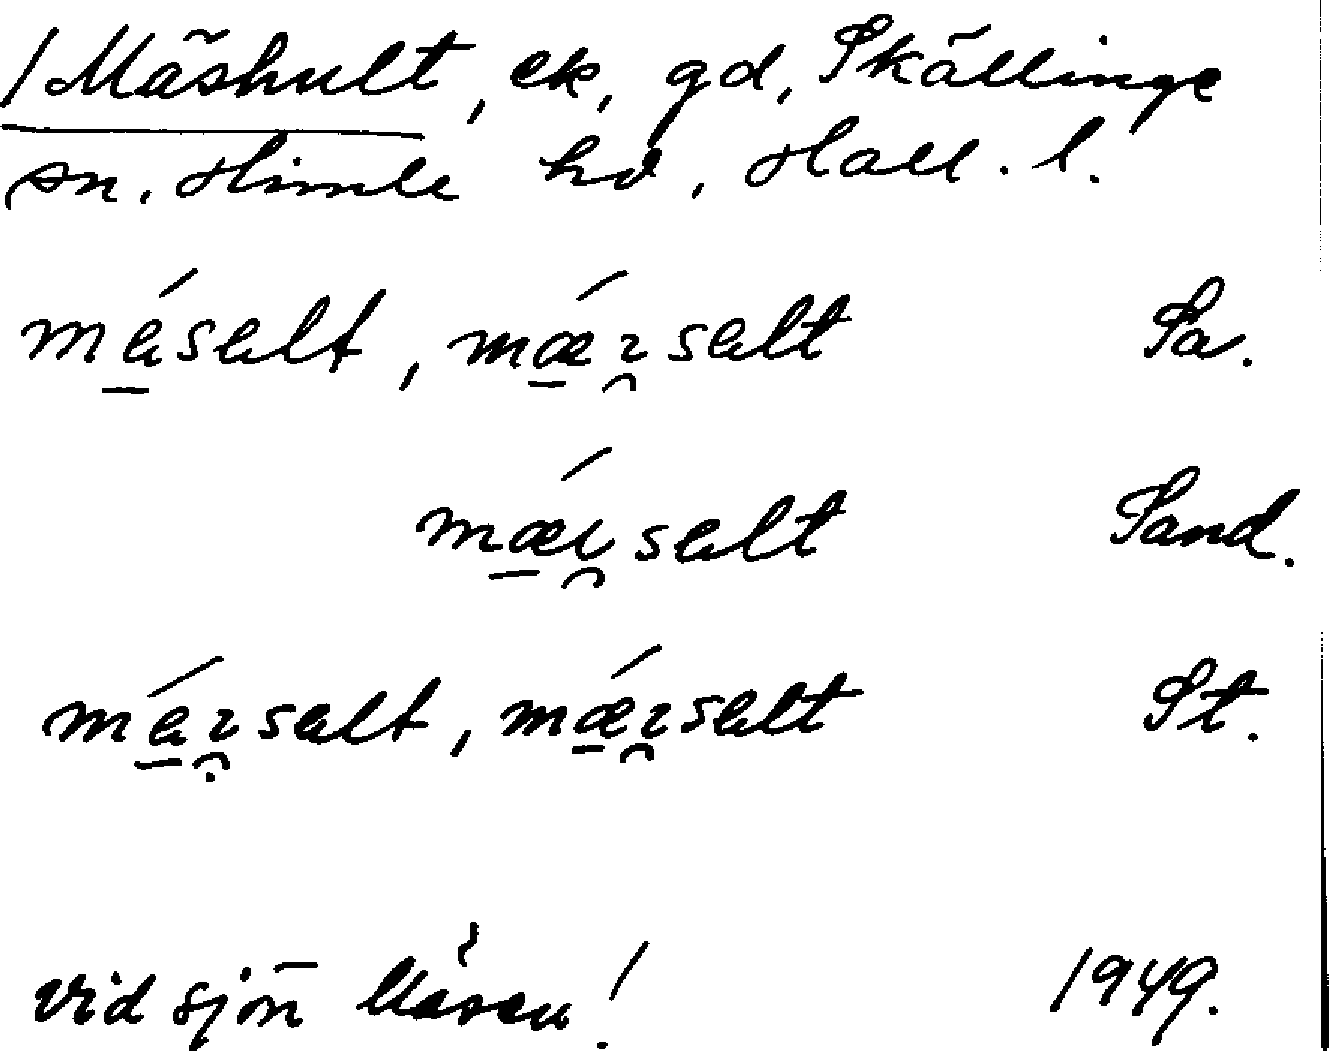 / Mäshult, ek, gd, Skällinge
sn. Himle hd, Hall. l.
mɛ́selt, mǽɪ̯selt Sa.
mǽɪ̯selt Sand.
mɛ́ɪ̯selt, mǽɪ̯selt St.
vid sjön Mäsen! 1949.